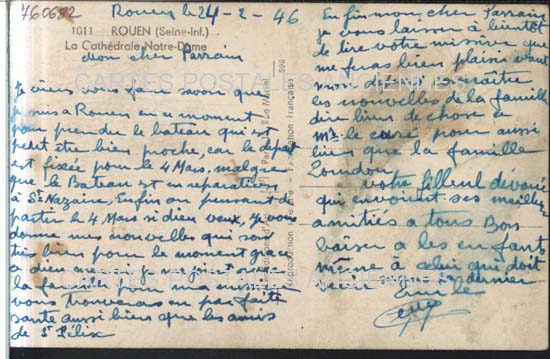 760692
Rouen le 24-2-46
1011 ROUEN (Seine-Inf.)
La Cathédrale Notre-Dame
Mon cher Parrain
Je viens vous faire savoir que
je suis a Rouen en ce moment
pour prendre le bateau qui est
peut être bien proche, car le depart
est fixée pour le 4 Mars. malgré
que le Bateau est en reparation
à St Nazaire. Enfin on pensant
partir le 4 Mars si dieu veux, Je vous
donne mes nouvelles qui sont
très bien pour le moment grace
a dieu
la
vous trouverais en parfaite
santé aussi bien que les amis
de St Félix
596
Reproduction Interdite - Fabrication Française
En fin mon cher Parrain
je vous laisse à bientôt
de lire votre missive que
me feras bien plaisir avant
mon de connaître
les nouvelles de la famille
dire bien de chose a
Mr le curé pour aussi
bie que la famille
votre filleul dévoué
qui envoient ses meilleurs
amitiés a tous Bon
baiser a les enfants
même à celui qui doit
venir le dernier
Emile
CARTES POSTALES ANCIENNES